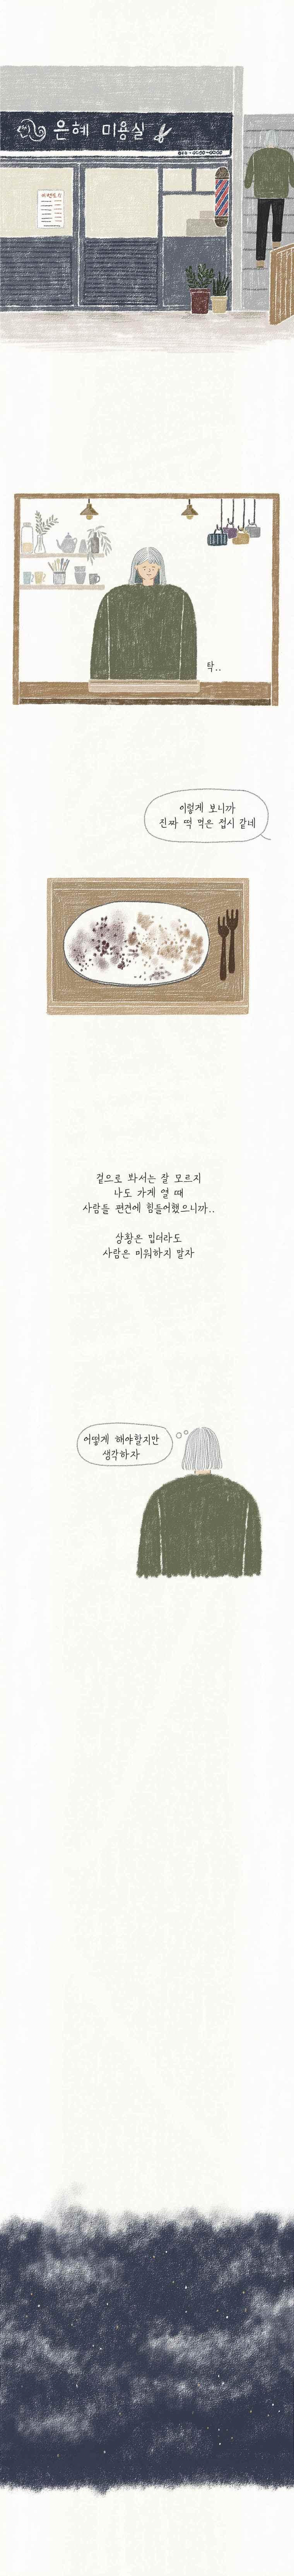 은혜 미용실
탁..
이렇게 보니까
진짜 떡 먹은 접시 같네
겉으로 봐서는 잘 모르지
나도 가게 열 때
사람들 편견에 힘들어했으니까..
상황은 밉더라도
사람은 미워하지 말자
어떻게 해야할지만
생각하자